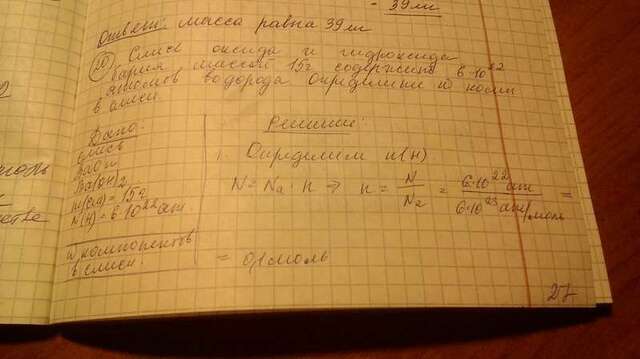 - 39 ли
Ответ: масса равна 39 ли
20) Смесь оксида и гидроксида
бария массой 15г содержит 6·10²²
атомов водорода. Определить ω комп
в смеси.
Дано:
смесь
BaO и
Ba(OH)₂
m(см) = 15г
N(H) = 6·10²² ат
ω компонентов
в смеси.
Решение:
1. Определим n(H)
N = Nₐ · n ⇒ n = N/Nₐ = 6·10²² ат / 6·10²³ ат/моль =
= 0,1 моль
27
стве